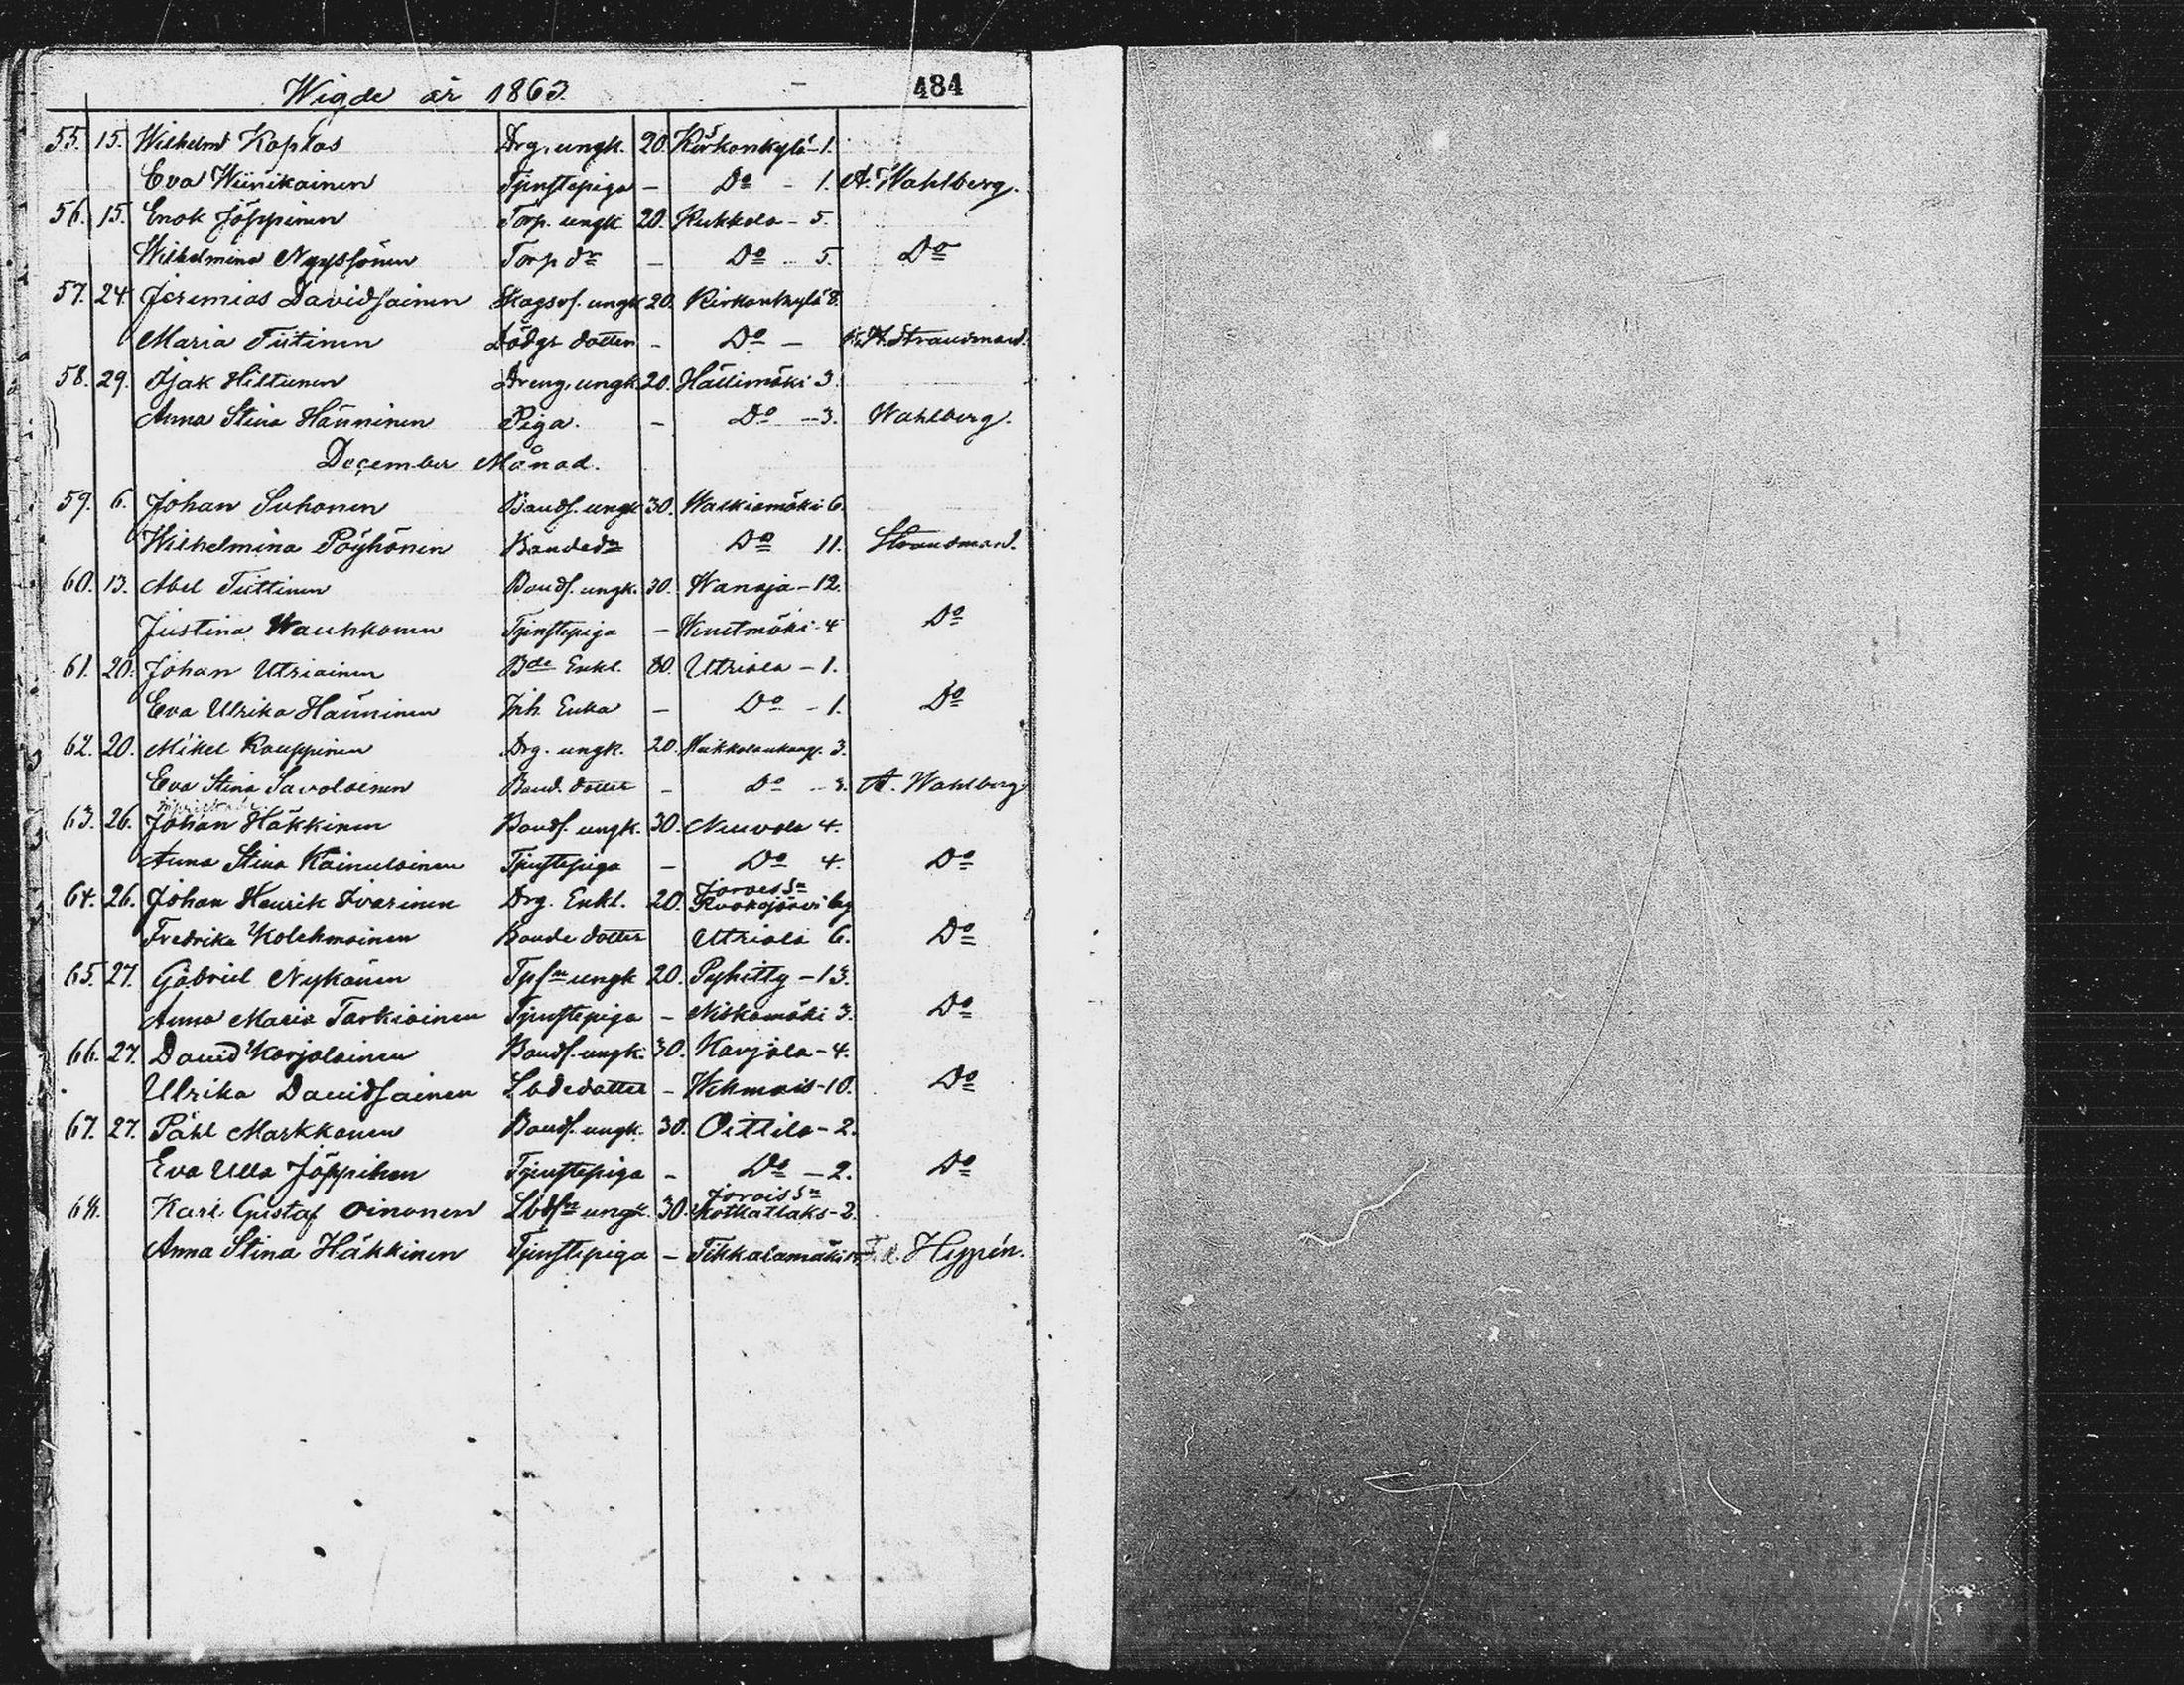 Wigde år 1863. 484
55. 15. Wilhelm Koplas Drg. ungk. 20. Kirkonkylä - 1.
Eva Wiinikainen Tjenstepiga - Do - 1. A. Wahlberg.
56. 15. Enok Jöppinen Torp. ungk. 20. Kukkola - 5.
Wilhelmina Nyyssönen Torp dr - Do - 5. Do
57. 24. Jeremias Davidsainen ungk 20. Kirkonkylä 8.
Maria Tiitinen dotter - Do - A. Strandman.
58. 29. Isak Hiltunen Dreng. ungk. 20. Hällimäki 3.
Anna Stina Hänninen Piga. - Do - 3. Wahlberg.
December Månad.
59. 6. Johan Suhonen Bonds. ungk 30. Waskiamäki 6.
Wilhelmina Pöyhönen Bondedr Do 11. Strandman.
60. 13. Abel Tiittinen Bonds. ungk. 30. Wanaja - 12.
Justina Wauhkonen Tjenstepiga - 4 Do
61. 20. Johan Utriainen Bde Enkl. 30. Utriala - 1.
Eva Ulrika Hänninen Inh. Enka - Do - 1. Do
62. 20. Mikel Kauppinen Drg. ungk. 20. 3.
Eva Stina Savolainen Bond. dotter - Do - 3. A. Wahlberg
63. 26. Johan Häkkinen Bonds. ungk. 30. Neuvola 4.
Anna Stina Kainulainen Tjenstepiga - Do 4. Do
Jorois Sn
64. 26. Johan Henrik Ivarinen Drg. Enkl. 20. Ruokojärvi
Fredrika Kolehmainen Bonde dotter Utriala 6. Do
65. 27. Gabriel Nykänen Tpsn ungk 20. Pyhitty - 13.
Anna Maria Tarkiainen Tjenstepiga - Niskamäki 3. Do
66. 27. David Karjalainen Bonds. ungk. 30. Karjala - 4.
Ulrika Davidsainen Lbdedotter - Wehmais - 10. Do
67. 27. Påhl Markkanen Bonds. ungk. 30. Oittila - 2.
Eva Ulla Jöppinen Tjenstepiga - Do - 2. Do
Jorois Sn
68. Karl Gustaf Oinonen Lbdsn ungk. 30. Kotkatlaks - 2.
Anna Stina Häkkinen Tjenstepiga - Tikkalamäki Hyppén.